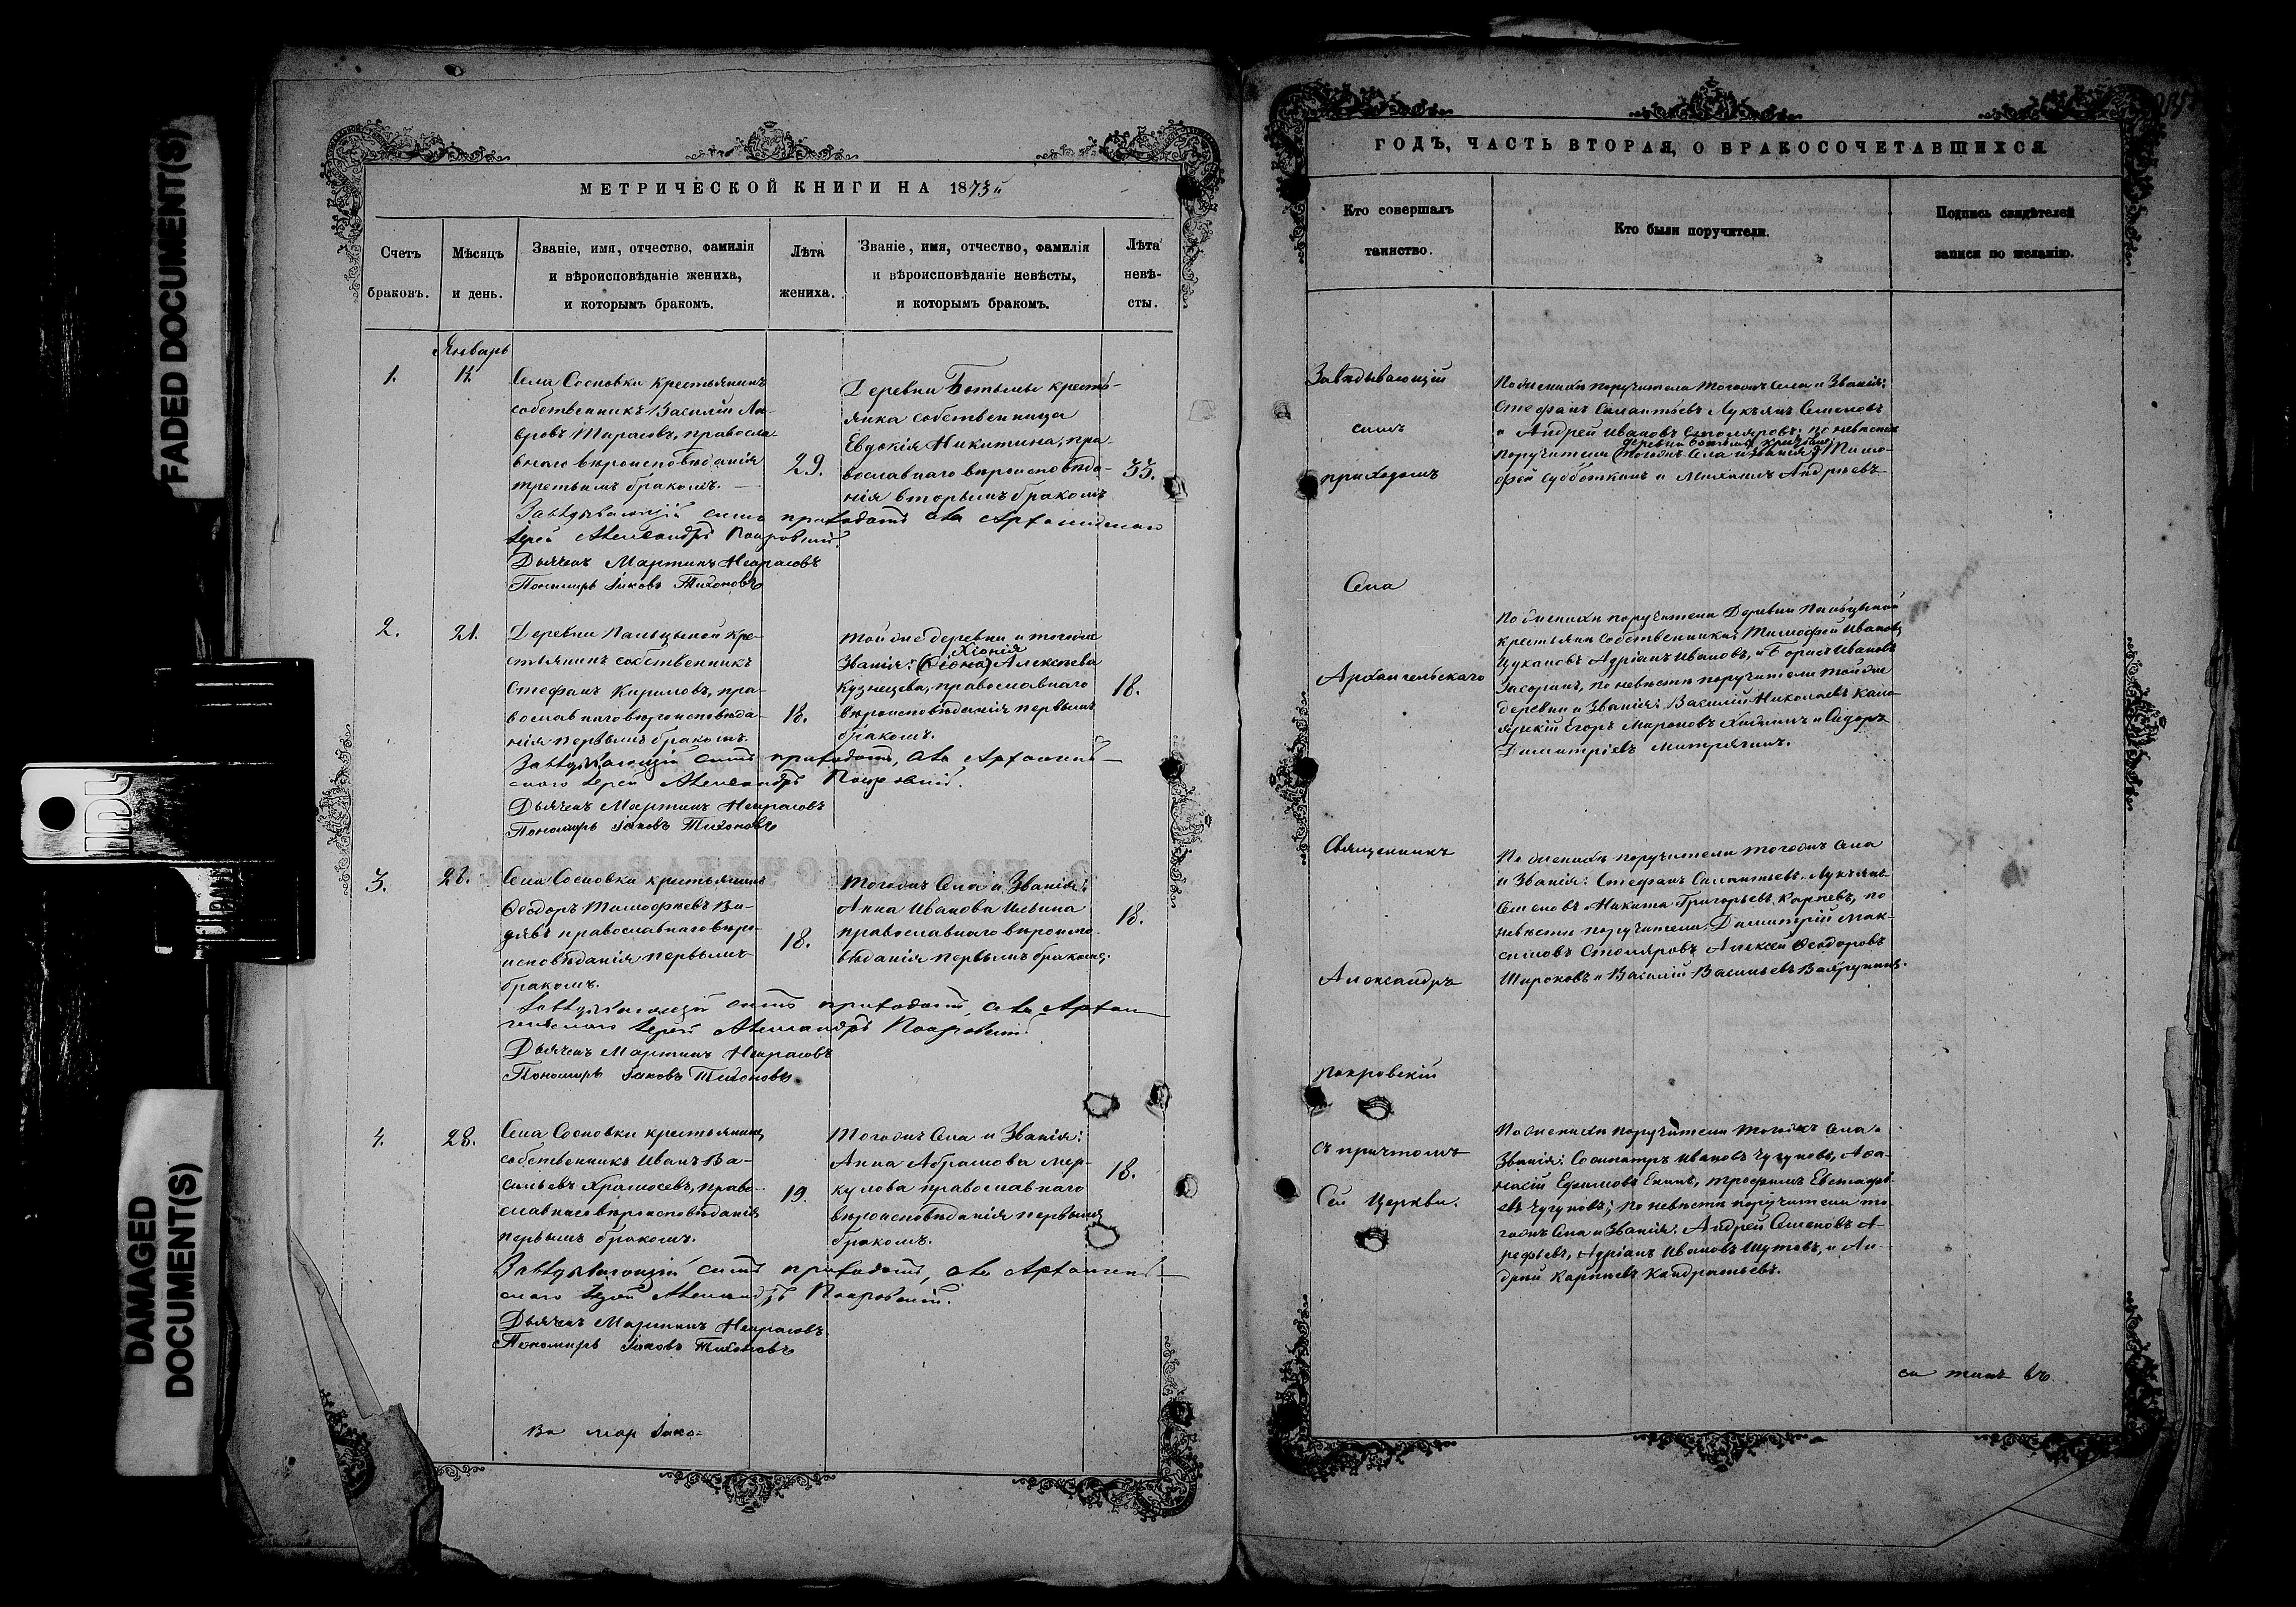 FADED DOCUMENT(S)
DAMAGED
DOCUMENT(S)
МЕТРИЧЕСКОЙ КНИГИ НА 1873й
Счетъ
браковъ.
Мѣсяцъ
и день.
Званіе, имя, отчество, фамилія
и вѣроисповѣданіе жениха,
и которымъ бракомъ.
Лѣта
жениха.
Званіе, имя, отчество, фамилія
и вѣроисповѣданіе невѣсты,
и которымъ бракомъ.
Лѣта
невѣ-
сты.
Январь
1.
14.
Села Сосновки крестьянинъ
собственникъ Василій Ла-
вровъ Тарасовъ, правосла-
внаго вѣроисповѣданія
третьимъ бракомъ.
29.
Деревни крестья-
янка собственница
Евдокія Никитина, пра-
вославнаго вѣроисповѣда-
нія вторымъ бракомъ
33.
Завѣдывающій симъ приходомъ села Архангельскаго
Іерей Александръ Покровскій.
Дьячекъ Мартинъ Некрасовъ
Пономарь Іаковъ Тихоновъ
2.
21.
Деревни Пальцыной кре-
стьянинъ собственникъ
Стефанъ Кириловъ, пра-
вославнаго вѣроисповѣда-
нія первымъ бракомъ.
18.
Той же деревни и тогоже
Хіонія
Званія: (Хіона) Алексѣева
Кузнецова, православнаго
вѣроисповѣданія первымъ
бракомъ.
18.
Завѣдывающій симъ приходомъ, села Архангель-
скаго Іерей Александръ Покровскій.
Дьячекъ Мартинъ Некрасовъ
Пономарь Іаковъ Тихоновъ
3.
28.
Села Сосновки крестьянинъ
Ѳеодоръ Тимофѣевъ
православнаго вѣро-
исповѣданія первымъ
бракомъ.
18.
Тогожъ Села и Званія:
Анна Иванова Ильина
православнаго вѣроиспо-
вѣданія первымъ бракомъ.
18.
Завѣдывающій симъ приходомъ, села Архан-
гельскаго Іерей Александръ Покровскій.
Дьячекъ Мартинъ Некрасовъ
Пономарь Іаковъ Тихоновъ
4.
28.
Села Сосновки крестьянинъ
собственникъ Иванъ Ва-
сильевъ Храмосевъ, право-
славнаго вѣроисповѣданія
первымъ бракомъ.
19.
Тогожъ Села и Званія:
Анна Абрамова Мер-
кулова православнаго
вѣроисповѣданія первымъ
бракомъ.
18.
Завѣдывающій симъ приходомъ, села Архангель-
скаго Іерей Александръ Покровскій.
Дьячекъ Мартинъ Некрасовъ
Пономарь Іаковъ Тихоновъ
Ва мар Іако-
ГОДЪ, ЧАСТЬ ВТОРАЯ, О БРАКОСОЧЕТАВШИХСЯ
Кто совершалъ
таинство.
Кто были поручители.
Подпись свидѣтелей
записи по желанію.
Завѣдывающій
симъ
приходомъ
Села
Архангельскаго
Священникъ
Александръ
Покровскій
съ причтомъ
Сей Церкви.
По женихѣ поручители тогожъ Села и Званія:
Стефанъ Силантьевъ Лукъянъ Семеновъ
и Андрей Ивановъ Столяровъ: по невѣстѣ
поручители (тогожъ Села и Званія) Тимо-
фей Субботкинъ и Михаилъ Андреевъ
По женихѣ поручители Деревни Пальцыной
крестьяне собственники: Тимофей Ивановъ
Цукановъ Адріанъ Ивановъ, и Борисъ Ивановъ
Засоринъ, по невѣстѣ поручители той же
деревни и Званія: Василій Николаевъ
Егоръ Мироновъ и Сидоръ
Димитріевъ Митрячинъ.
По женихѣ поручители тогожъ Села
и Званія: Стефанъ Силантьевъ Лукъянъ
Семеновъ Никита Григорьевъ Карпевъ, по
невѣстѣ поручители: Димитрій Мак-
симовъ Столяровъ Алексей Ѳеодоровъ
Широковъ и Василій Васильевъ
По женихѣ поручители тогожъ Села и
Званія: Сосипатръ Ивановъ Чугуновъ, Аѳа-
насій Ефимовъ Енинъ, Трофимъ Евстафі-
евъ Чугуновъ; по невѣстѣ поручители то-
гожъ Села и Званія: Андрей Семеновъ А-
рефьевъ, Адріанъ Ивановъ Шутовъ, и Ан-
дрей Карпевъ Кандратьевъ.